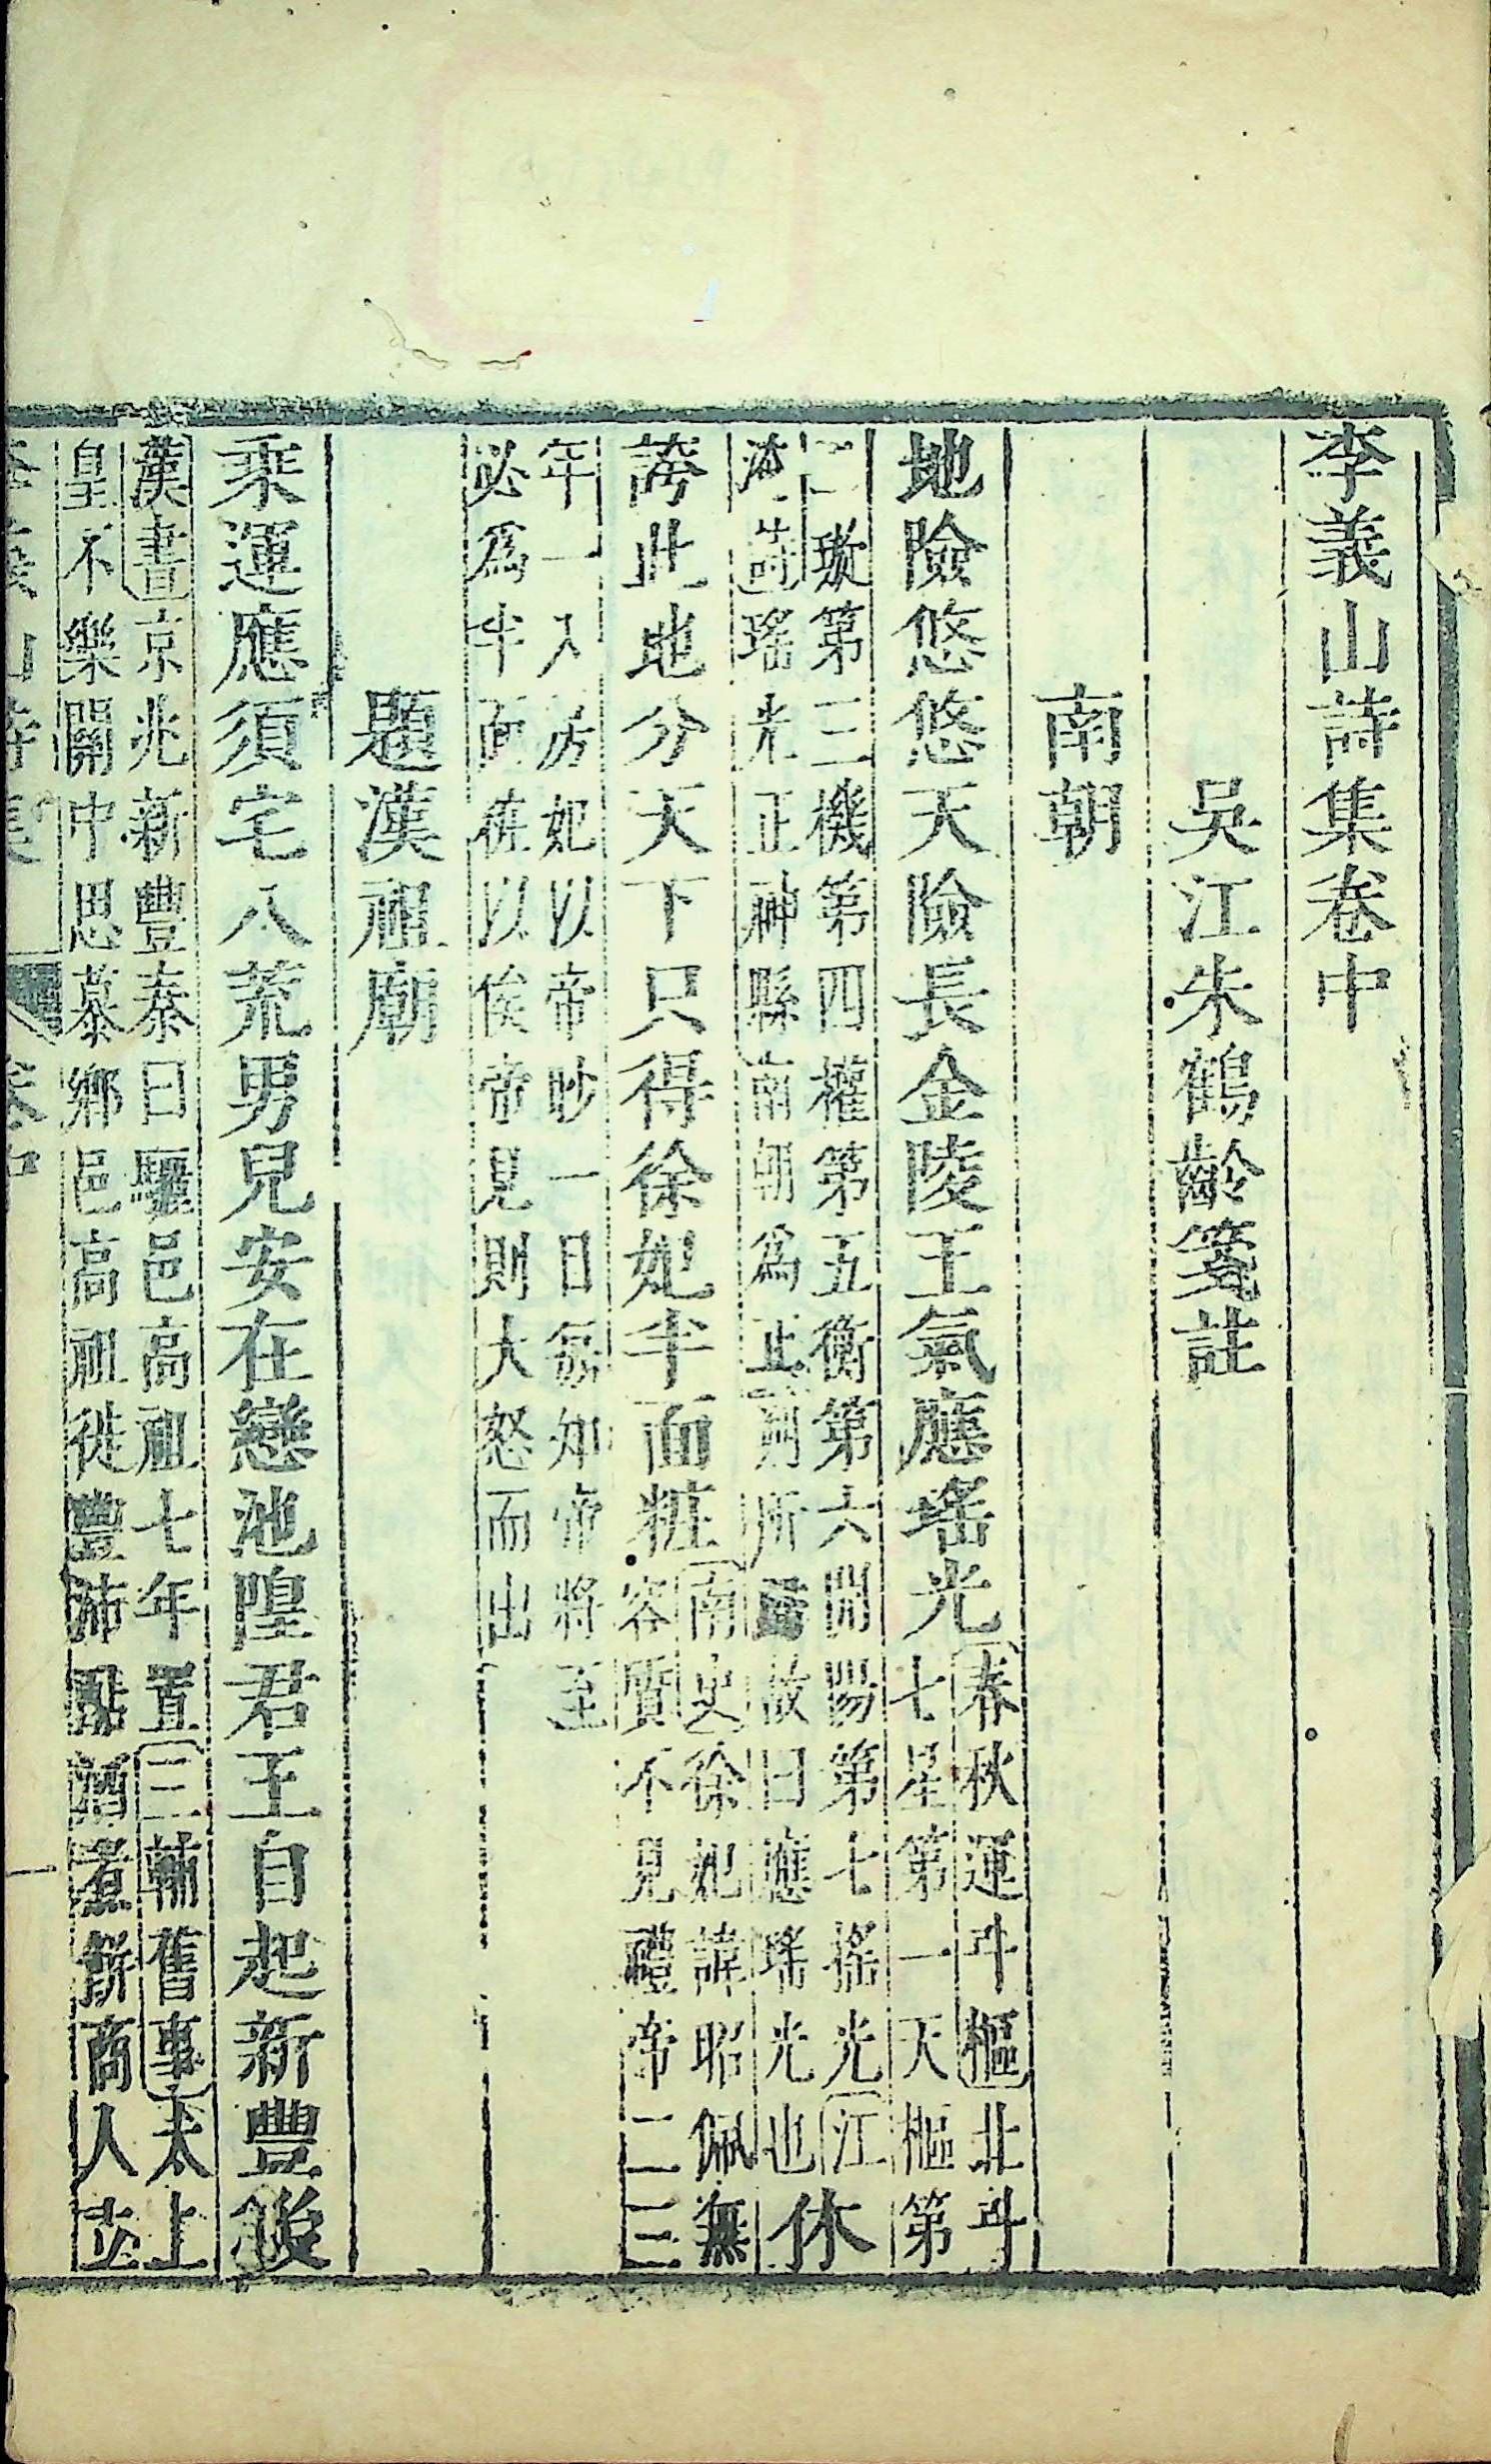 李義山詩集卷中
吳江朱鶴齡箋註
南朝
地險悠悠天險長金陵王氣應瑤光
春秋運斗樞北斗
七星第一天樞第
二璇第三機第四權第五衡第六開陽第七搖光江
淹詩瑤光正神縣南朝為正朔所歸故曰應瑤光也
休
誇此地分天下只得徐妃半面粧
南史徐妃諱昭佩無
容質不見禮帝二三
年一入房妃以帝眇一目每知帝將至
必為半面粧以俟帝見則大怒而出
題漢祖廟
乘運應須宅八荒男兒安在戀池隍君王自起新豐後
漢書京兆新豐秦曰驪邑高祖七年置三輔舊事太上
皇不樂關中思慕鄉邑高祖徙豐沛酤酒煮餅商人立